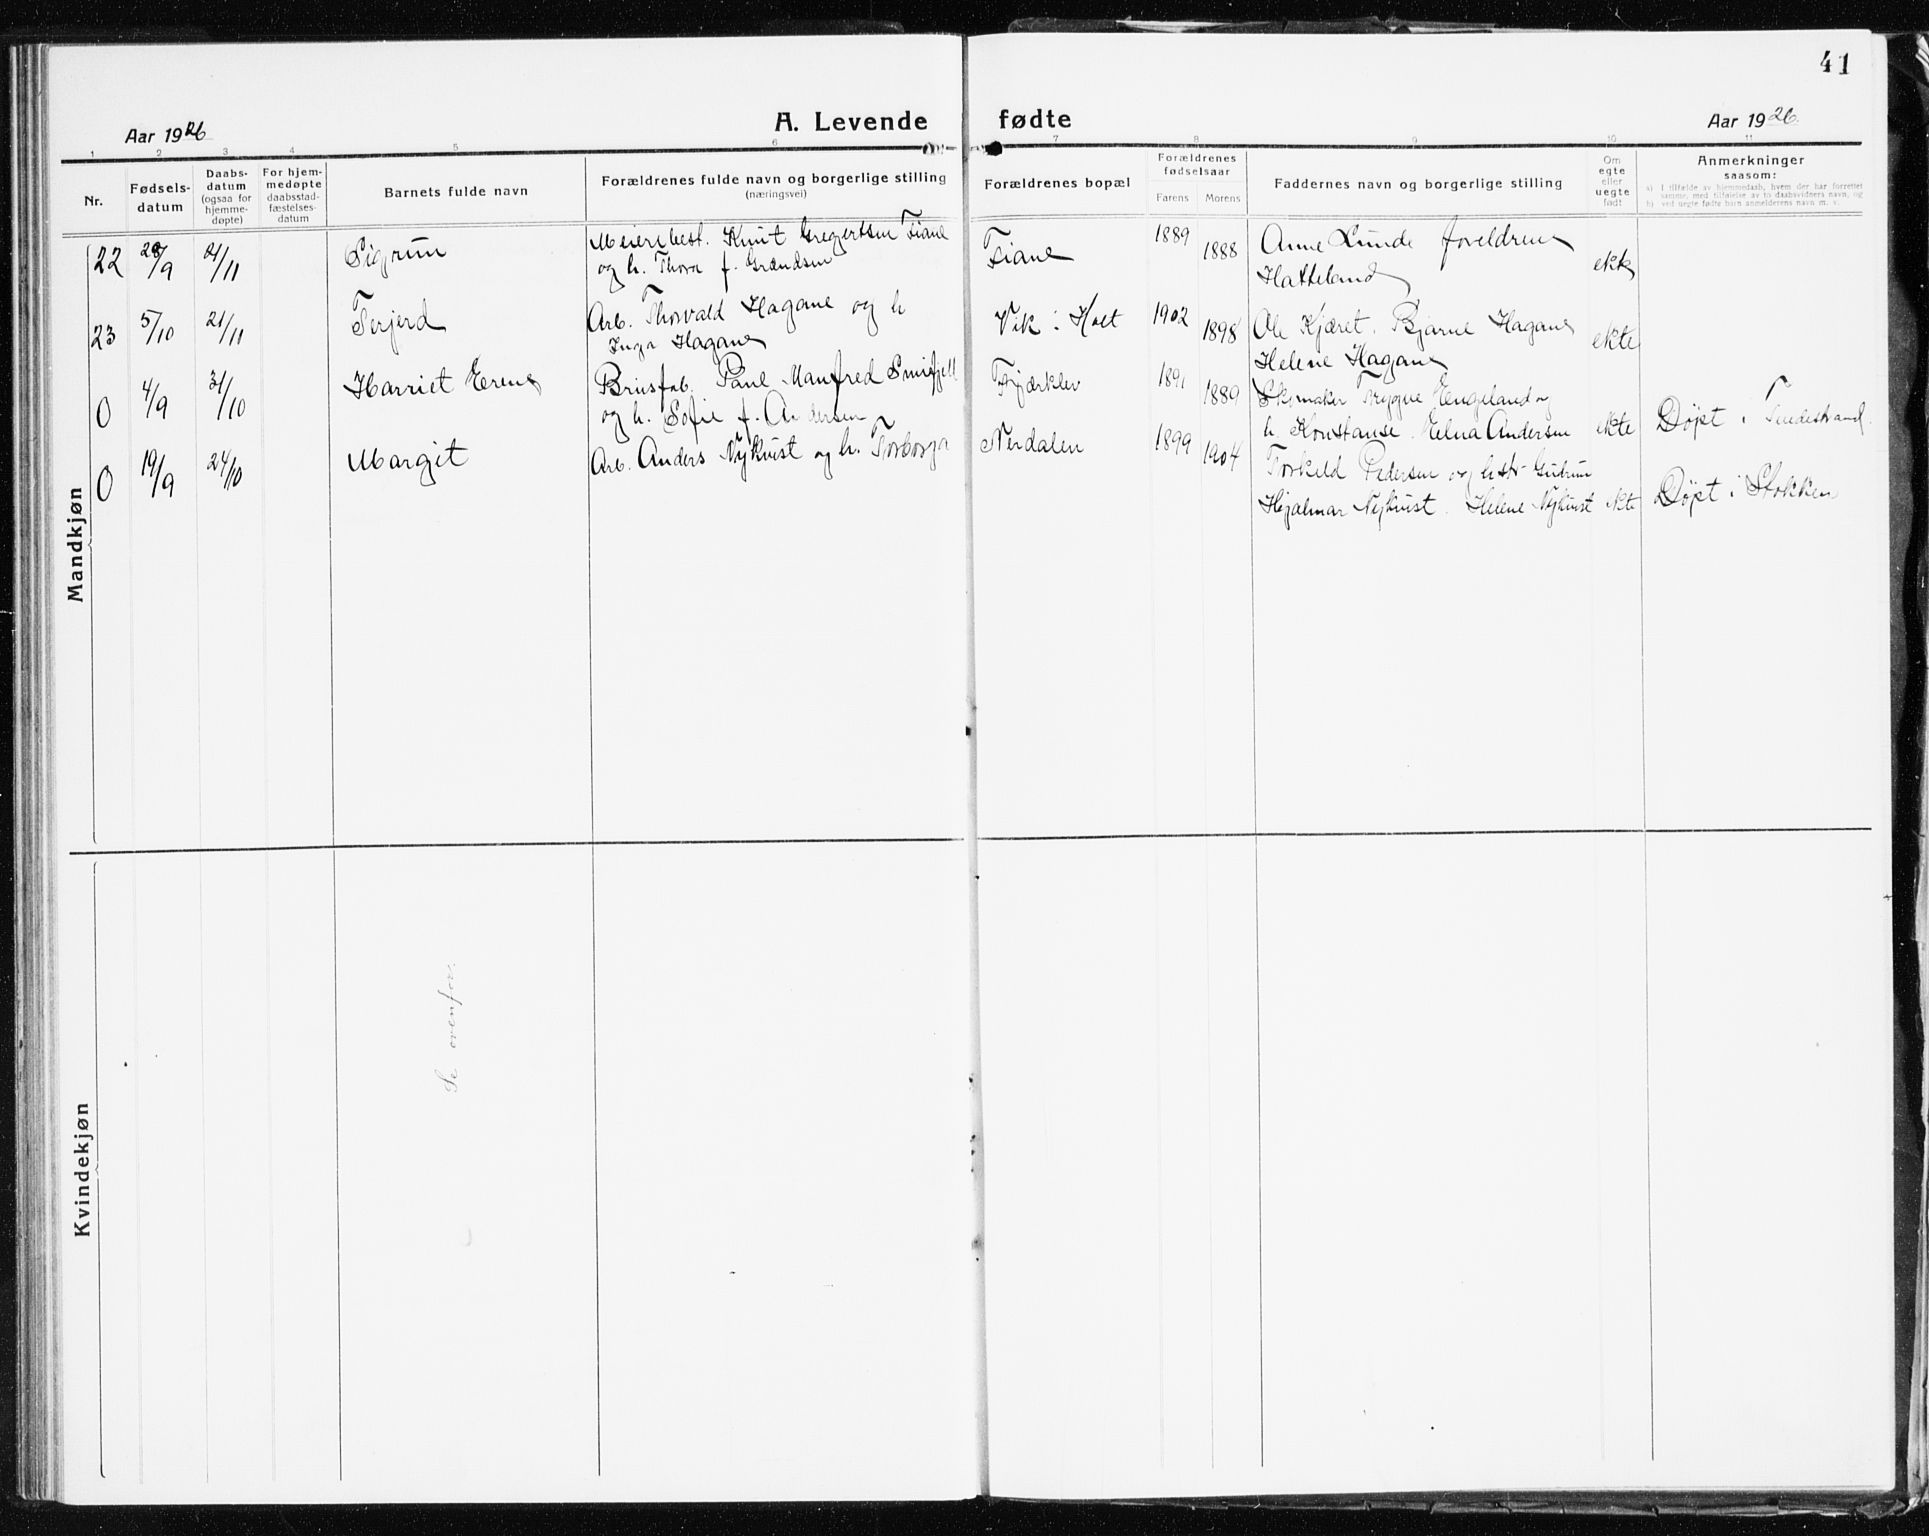 41
A. Levende fødte
Aar 1926
Aar 1926.
1 2 3 4 5 6 7 8 9 10 11
Nr.
Fødsels-
datum
Daabs-
datum
(ogsaa for
hjemme-
døpte)
For hjem-
medøpte
daabsstad-
fæstelses-
datum
Barnets fulde navn
Forældrenes fulde navn og borgerlige stilling
(næringsvei)
Forældrenes bopæl
Forældrenes
fødselsaar
Farens Morens
Faddernes navn og borgerlige stilling
Om
egte
eller
uegte
født
Anmerkninger
saasom:
a) I tilfælde av hjemmedaab, hvem der har forrettet
samme, med tilføielse av to daabsvidners navn, og
b) ved uegte fødte barn anmelderens navn m. v.
Mandkjøn
22 28/9 21/11 Sigrun
Meieribest. Knut Gregertsen Fiane
og h. Thora f.
Fiane 1889 1888
Anne Lunde foreldrene
Hatteland ekte
23 5/10 21/11 Terjerd
Arb. Thorvald Hagane og h
Inga Hagane
Vik i Holt 1902 1898
Ole Kjæret. Bjarne Hagane
Helene Hagane ekte
0 4/9 31/10 Harriet Erene
Brusfab. Paul Manfred
og h. Sofie f. Andersen
Fjærklev 1891 1889
Skomaker Trygve Engeland og
h. Konstanse. Elna Andersen ekte
Døpt i Tvedestrand.
0 19/9 24/10 Margit
Arb. Anders Nykvist og h. Torborga
Nerdalen 1899 1904
Torkeld Pedersen og hstr Gudrun
Hjalmar Nykvist. Helene Nykvist ekte
Døpt i Stokken
Kvindekjøn
Se ovenfor.